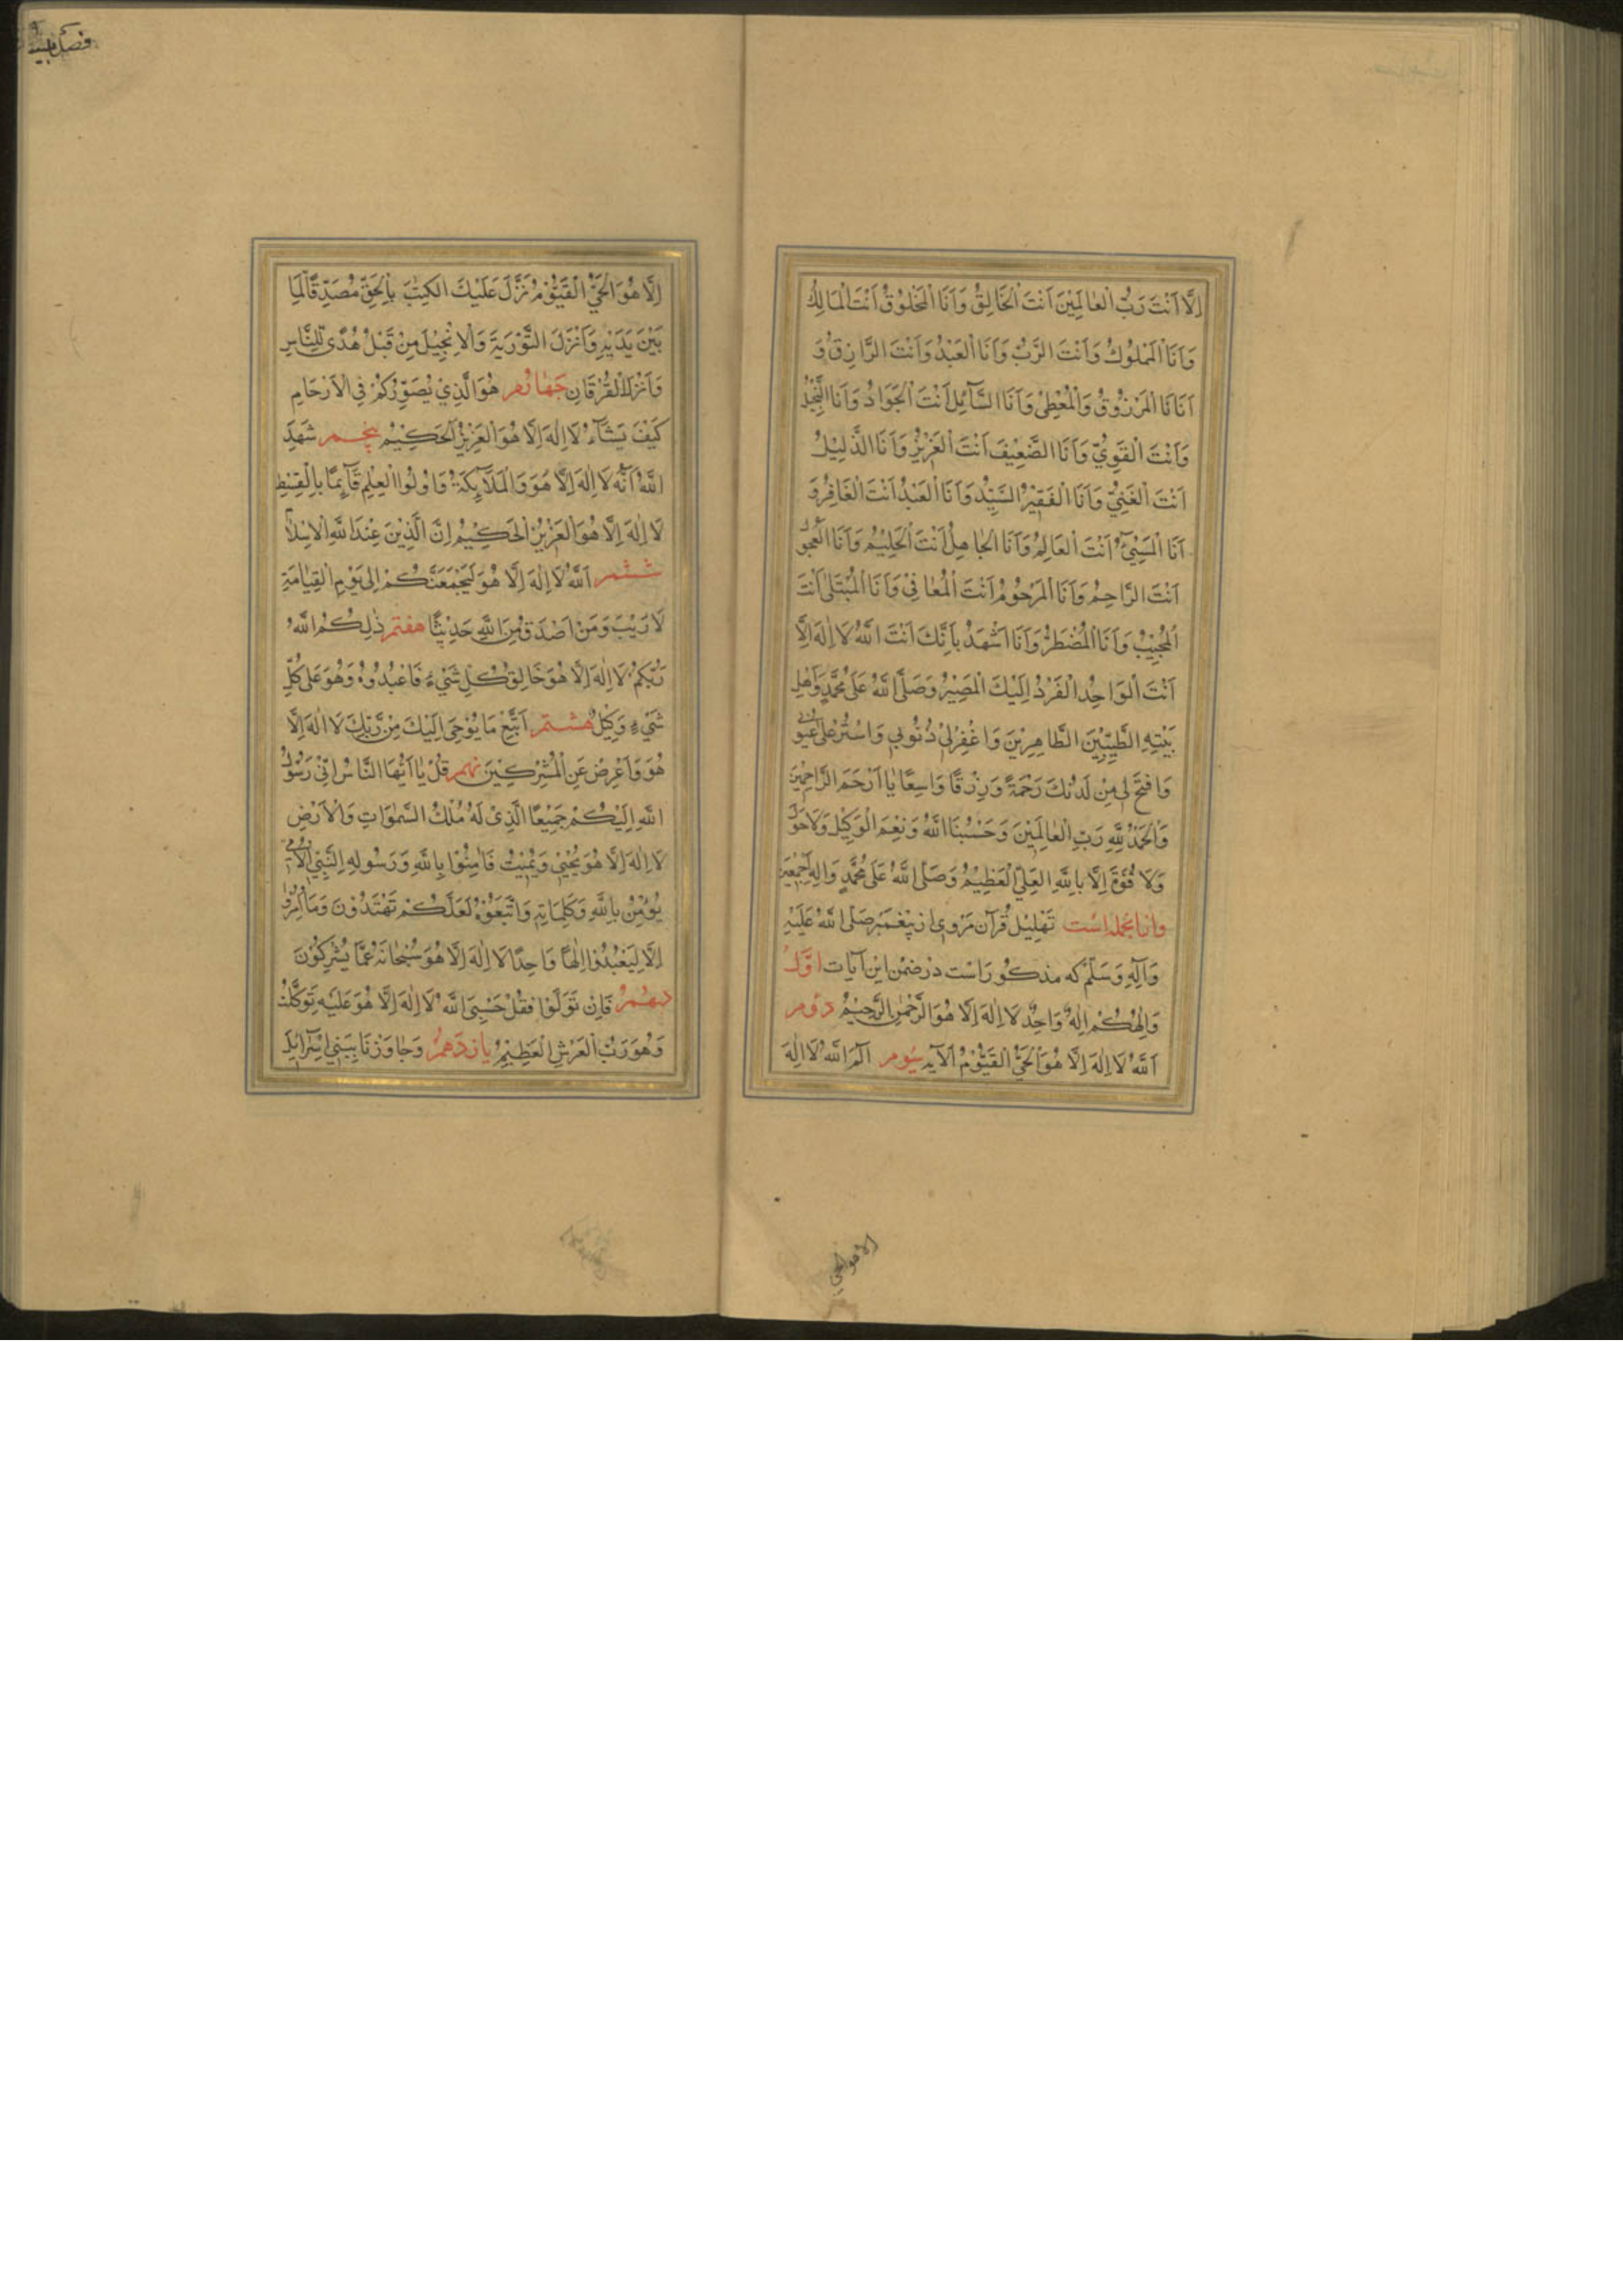 اِلَّا اَنْتَ رَبُّ الْعٰالَمِيْنَ اَنْتَ الْخَالِقُ وَاَنَا الْمَخْلُوْقُ اَنْتَ الْمَالِكُ
وَاَنَا الْمَمْلُوكُ وَاَنْتَ الرَّبُّ وَاَنَا الْعَبْدُ وَاَنْتَ الرَّازِقُ وَ
اَنَانَا الْمَرْزُوْقُ وَالْمُعْطِىْ وَاَنَا السَّآئِلُ اَنْتَ الْجَوَادُ وَاَنَا
وَاَنْتَ الْقَوِيُّ وَاَنَا الضَّعِيْفُ اَنْتَ الْعَزِيْزُ وَاَنَا الذَّلِيْلُ
اَنْتَ الْغَنِيُّ وَاَنَا الْفَقِيْرُ السَّيِّدُ وَاَنَا الْعَبْدُ اَنْتَ الْغَافِرُ وَ
اَنَا الْمُسِيْٓئُ اَنْتَ الْعَالِمُ وَاَنَا الْجَاهِلُ اَنْتَ الْحَلِيْمُ وَاَنَا الْعَجُوْلُ
اَنْتَ الرَّاحِمُ وَاَنَا الْمَرْحُوْمُ اَنْتَ الْمُعٰافِيْ وَاَنَا الْمُبْتَلٰى اَنْتَ
الْمُجِيْبُ وَاَنَا الْمُضْطَرُّ وَاَنَا اَشْهَدُ بِاَنَّكَ اَنْتَ اللّٰهُ لَا اِلٰهَ اِلَّا
اَنْتَ الْوَاحِدُ الْفَرْدُ اِلَيْكَ الْمَصِيْرُ وَصَلَّى اللّٰهُ عَلٰى مُحَمَّدٍ وَاَهْلِ
بَيْتِهِ الطَّيِّبِيْنَ الطَّاهِرِيْنَ وَاغْفِرْلِيْ ذُنُوْبِي وَاسْتُرْ عَلَىَّ عُيُوْبِي
وَافْتَحْ لِي مِنْ لَدُنْكَ رَحْمَةً وَرِزْقًا وَاسِعًا يٰا اَرْحَمَ الرَّاحِمِيْنَ
وَالْحَمْدُ لِلّٰهِ رَبِّ الْعٰالَمِيْنَ وَحَسْبُنَا اللّٰهُ وَنِعْمَ الْوَكِيْلُ وَلَا حَوْلَ
وَلَا قُوَّةَ اِلَّا بِاللّٰهِ الْعَلِيِّ الْعَظِيْمِ وَصَلَّى اللّٰهُ عَلٰى مُحَمَّدٍ وَاٰلِهِ اَجْمَعِيْنَ
وازانجمله است تَهْلِيْل قُرْآن مَرْوِى از پَيْغَمْبَر صَلَّى اللّٰهُ عَلَيْهِ
وَآلِهِ وَسَلَّمْ كه مذكور است در ضِمْن اين آيات اوّل
وَاِلٰهُكُمْ اِلٰهٌ وَاحِدٌ لَا اِلٰهَ اِلَّا هُوَ الرَّحْمٰنُ الرَّحِيْمُ دوم
اَللّٰهُ لَا اِلٰهَ اِلَّا هُوَ الْحَيُّ الْقَيُّوْمُ الآيه سيوم الٓمٓ اَللّٰهُ لَا اِلٰهَ
الا هو الحي
اِلَّا هُوَ الْحَيُّ الْقَيُّوْمُ نَزَّلَ عَلَيْكَ الْكِتٰبَ بِالْحَقِّ مُصَدِّقًا لِمَا
بَيْنَ يَدَيْهِ وَاَنْزَلَ التَّوْرٰيةَ وَالْاِنْجِيْلَ مِنْ قَبْلُ هُدًى لِلنَّاسِ
وَاَنْزَلَ الْفُرْقَانَ چهارم هُوَ الَّذِيْ يُصَوِّرُكُمْ فِى الْاَرْحَامِ
كَيْفَ يَشَآءُ لَا اِلٰهَ اِلَّا هُوَ الْعَزِيْزُ الْحَكِيْمُ پنجم شَهِدَ
اللّٰهُ اَنَّهُ لَا اِلٰهَ اِلَّا هُوَ وَالْمَلٰٓائِكَةُ وَاُولُوا الْعِلْمِ قَآئِمًا بِالْقِسْطِ
لَا اِلٰهَ اِلَّا هُوَ الْعَزِيْزُ الْحَكِيْمُ اِنَّ الَّذِيْنَ عِنْدَ اللّٰهِ الْاِسْلَامُ
ششم اَللّٰهُ لَا اِلٰهَ اِلَّا هُوَ لَيَجْمَعَنَّكُمْ اِلٰى يَوْمِ الْقِيٰامَةِ
لَا رَيْبَ وَمَنْ اَصْدَقُ مِنَ اللّٰهِ حَدِيْثًا هفتم ذٰلِكُمُ اللّٰهُ
رَبُّكُمْ لَا اِلٰهَ اِلَّا هُوَ خَالِقُ كُلِّ شَيْءٍ فَاعْبُدُوْهُ وَهُوَ عَلٰى كُلِّ
شَيْءٍ وَكِيْلٌ هشتم اَتَّبِعْ مَا يُوْحٰى اِلَيْكَ مِنْ رَبِّكَ لَا اِلٰهَ اِلَّا
هُوَ وَاَعْرِضْ عَنِ الْمُشْرِكِيْنَ نهم قُلْ يٰا اَيُّهَا النَّاسُ اِنِّيْ رَسُوْلُ
اللّٰهِ اِلَيْكُمْ جَمِيْعًا الَّذِىْ لَهُ مُلْكُ السَّمٰوَاتِ وَالْاَرْضِ
لَا اِلٰهَ اِلَّا هُوَ يُحْيِيْ وَيُمِيْتُ فَاٰمِنُوْا بِاللّٰهِ وَرَسُوْلِهِ النَّبِيِّ الْاُمِّيِّ
يُؤْمِنُ بِاللّٰهِ وَكَلِمَاتِهِ وَاتَّبِعُوْهُ لَعَلَّكُمْ تَهْتَدُوْنَ وَمَا اُمِرُوْا
اِلَّا لِيَعْبُدُوْا اِلٰهًا وَاحِدًا لَا اِلٰهَ اِلَّا هُوَ سُبْحٰانَهُ عَمَّا يُشْرِكُوْنَ
دهم فَاِنْ تَوَلَّوْا فَقُلْ حَسْبِيَ اللّٰهُ لَا اِلٰهَ اِلَّا هُوَ عَلَيْهِ تَوَكَّلْتُ
وَهُوَ رَبُّ الْعَرْشِ الْعَظِيْمِ يازدهم وَجٰاوَزْنَا بِبَنِيْ اِسْرَآئِيْلَ